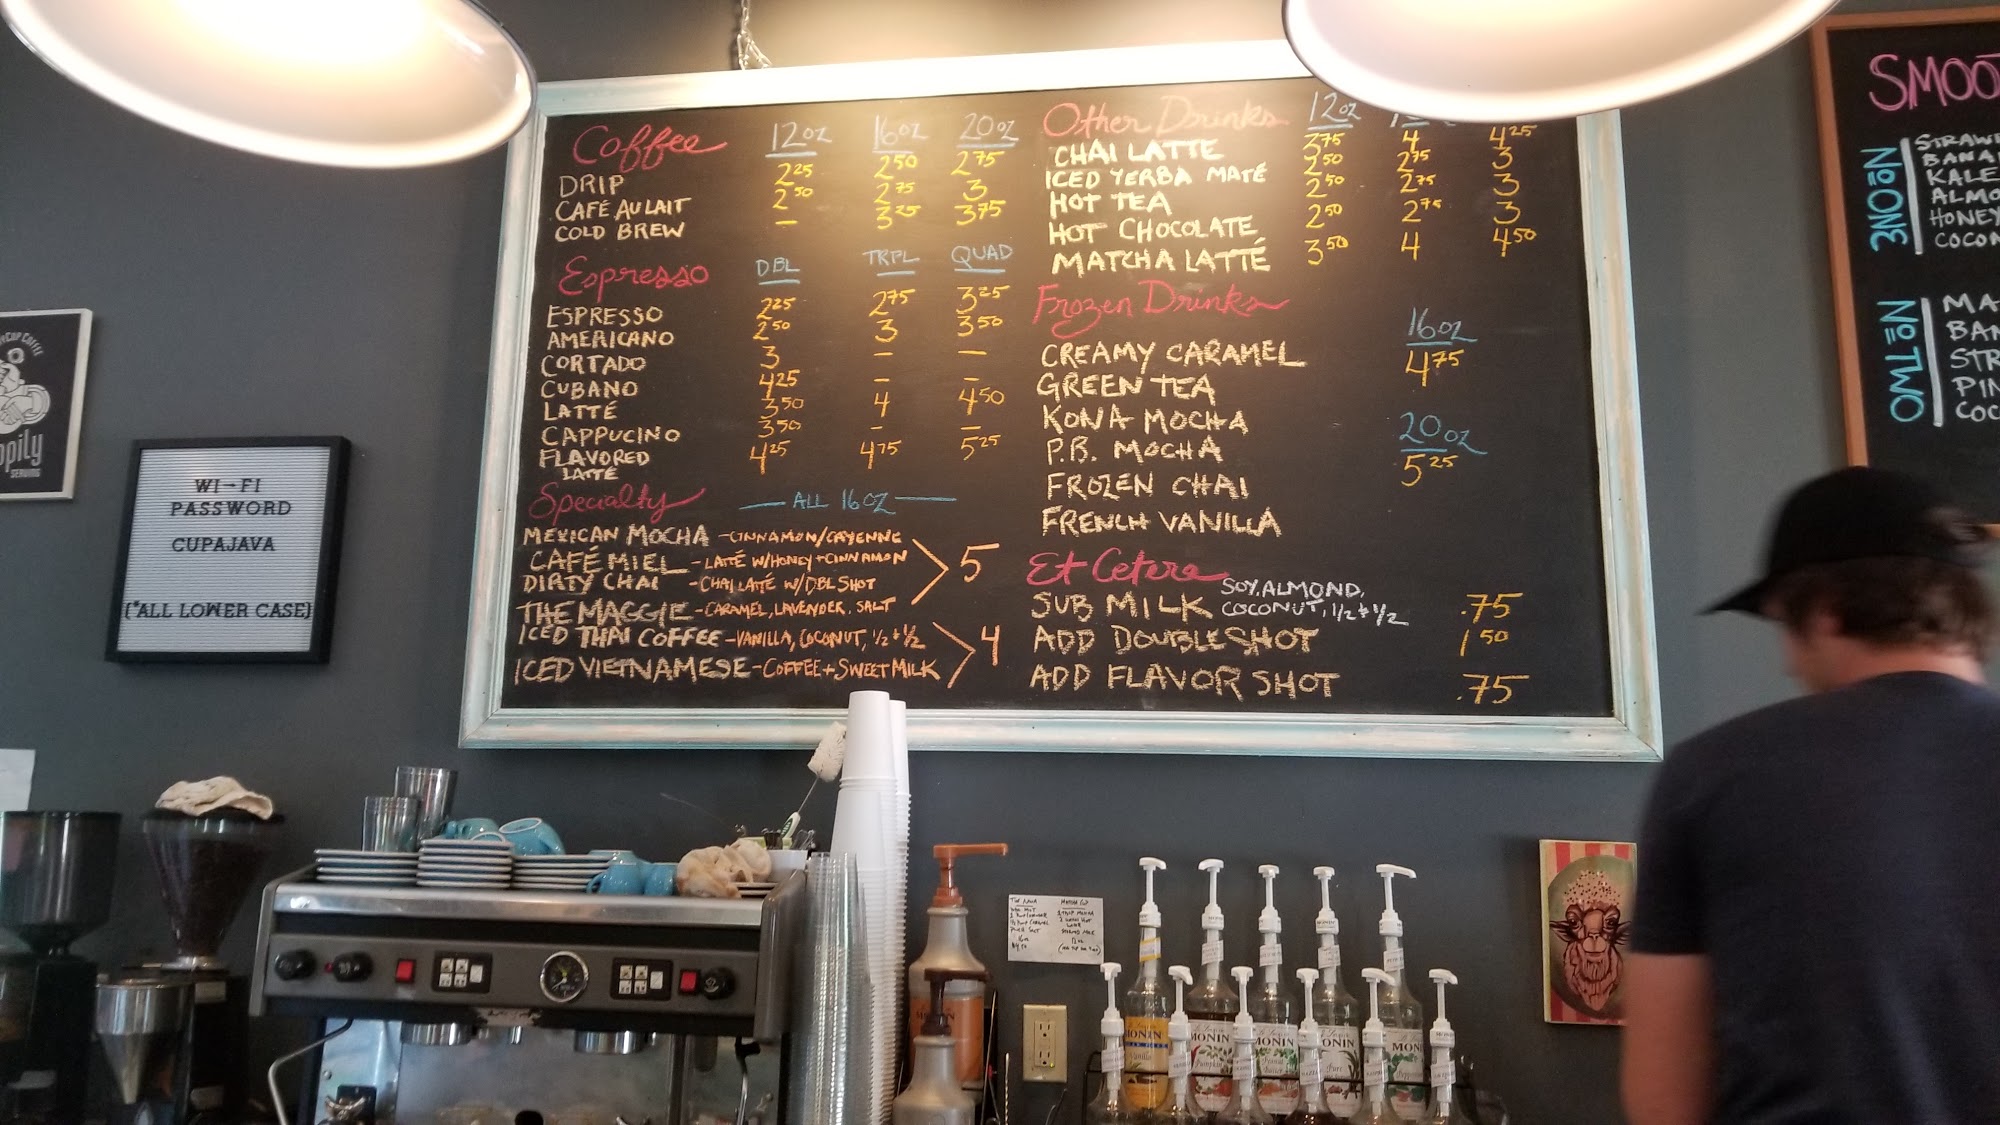 Coffee 12oz 16oz 20oz
DRIP 2.25 2.50 2.75
CAFÉ AU LAIT 2.50 2.75 3
COLD BREW — 3.25 3.75
Espresso DBL TRPL QUAD
ESPRESSO 2.25 2.75 3.25
AMERICANO 2.50 3 3.50
CORTADO 3 — —
CUBANO 4.25 — —
LATTÉ 3.50 4 4.50
CAPPUCINO 3.50 — —
FLAVORED LATTÉ 4.25 4.75 5.25
Specialty — ALL 16OZ —
MEXICAN MOCHA - CINNAMON/CAYENNE
CAFÉ MIEL - LATTÉ W/HONEY + CINNAMON
DIRTY CHAI - CHAI LATTÉ W/DBL SHOT
THE MAGGIE - CARAMEL, LAVENDER, SALT
5
ICED THAI COFFEE - VANILLA, COCONUT, 1/2 + 1/2
ICED VIETNAMESE - COFFEE + SWEET MILK
4
Other Drinks 12oz
CHAI LATTE 3.75 4 4.25
ICED YERBA MATÉ 2.50 2.75 3
HOT TEA 2.50 2.75 3
HOT CHOCOLATE 2.50 2.75 3
MATCHA LATTÉ 3.50 4 4.50
Frozen Drinks
CREAMY CARAMEL
GREEN TEA
KONA MOCHA
P.B. MOCHA
FROZEN CHAI
FRENCH VANILLA
16oz
4.75
20oz
5.25
Et Cetera
SUB MILK SOY, ALMOND, COCONUT, 1/2 + 1/2 .75
ADD DOUBLE SHOT 1.50
ADD FLAVOR SHOT .75
WI-FI
PASSWORD
CUPAJAVA
(*ALL LOWER CASE)
SERVING
SMOO
NO=NE
BANA
KALE
ALMO
HONEY
COCON
NO=TWO
MA
BAN
STR
PIN
COC
MONIN
MONIN
MONIN
MONIN
MONI